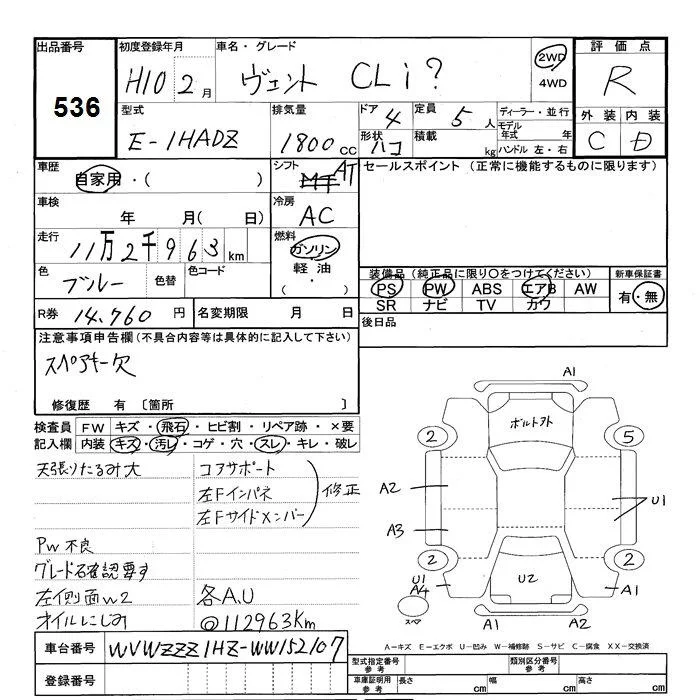 出品番号 536
初度登録年月 H10 2月
車名・グレード ヴェント CLi?
2WD
4WD
評価点 R
外装 内装
C D
型式 E-1HADZ
排気量 1800CC
ドア 4
形状 ハコ
定員 5人
積載 kg
ディーラー・並行
モデル年式 年
ハンドル 左・右
車歴 自家用・( )
シフト AT
セールスポイント (正常に機能するものに限ります)
車検 年 月( 日)
冷房 AC
走行 11万2千963km
燃料 ガソリン
軽油
( ・ )
色 ブルー 色替 色コード
装備品(純正品に限り○をつけてください)
新車保証書
PS PW ABS エアB AW
有・無
SR ナビ TV カワ
R券 14,760円
名変期限 月 日
後日品
注意事項申告欄(不具合内容等は具体的に記入して下さい)
スペアキー欠
修復歴 有 〔箇所 〕
検査員 FW キズ・飛石・ヒビ割・リペア跡・×要
記入欄 内装 キズ・汚レ・コゲ・穴・スレ・キレ・破レ
天張りたるみ大
コアサポート
左Fインパネ
左Fサイドメンバー
修正
PW不良
グレード名確認要す
左側面W2 各A.U
オイルにじみ @112963Km
A1
ボルトヲト
2 5
A2
U1
A3
2 2
U1
A4
U2
A1
スペア
A1 A2
A-キズ E-エクボ U-凹み W-補修跡 S-サビ C-腐食 XX-交換済
車台番号 WVWZZZ1HZ-WW152107
登録番号
型式指定番号 参考
類別区分番号 参考
車庫証明用 参考 長さ cm 幅 cm 高さ cm